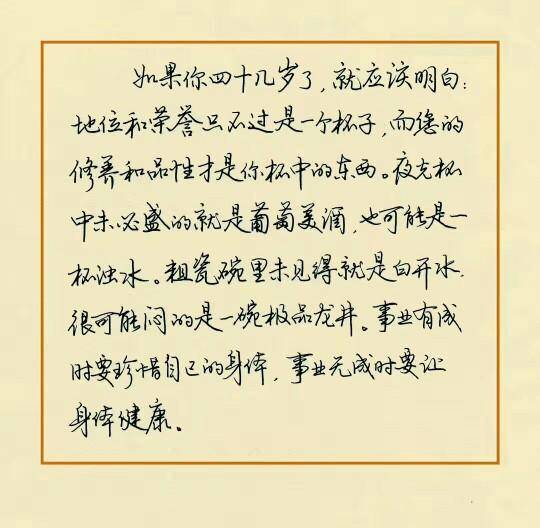 如果你四十几岁了，就应该明白：
地位和荣誉只不过是一个杯子，而您的
修养和品性才是你杯中的东西。夜光杯
中未必盛的就是葡萄美酒，也可能是一
杯浊水。粗瓷碗里未见得就是白开水．
很可能闷的是一碗极品龙井。事业有成
时要珍惜自己的身体，事业无成时要让
身体健康。